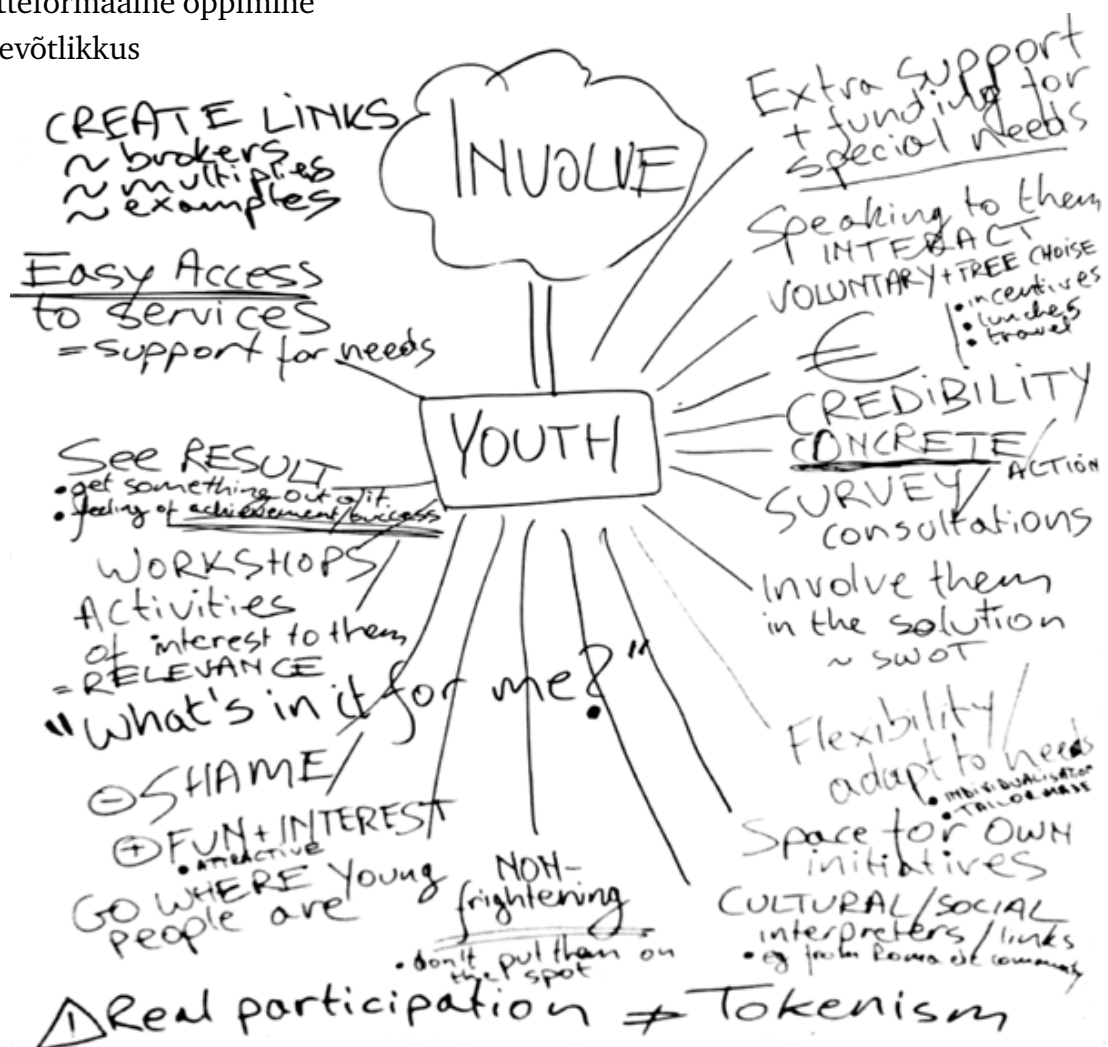 tteformaalne õppimine
evõtlikkus
INVOLVE
YOUTH
CREATE LINKS
~ brokers
~ multiplies
~ examples
Easy Access
to services
= support for needs
See RESULT
• get something out of it
• feeling of achievement/success
WORKSHOPS
Activities
of interest to them
= RELEVANCE
"What's in it for me?"
⊖ SHAME
⊕ FUN + INTEREST
• ATTRACTIVE
GO WHERE Young
people are
NON-
frightening
• don't put them on
the spot
Extra support
+ funding for
special needs
Speaking to them
INTERACT
VOLUNTARY + FREE CHOISE
• incentives
• lunches
• travel
€
CREDIBILITY
CONCRETE
/ ACTION
SURVEY /
consultations
Involve them
in the solution
~ SWOT
Flexibility /
adapt to needs
• INDIVIDUALISATION
• TAILORMADE
Space for OWN
initiatives
CULTURAL/SOCIAL
interpreters/links
• eg from Roma etc community
⚠ Real participation ≠ Tokenism